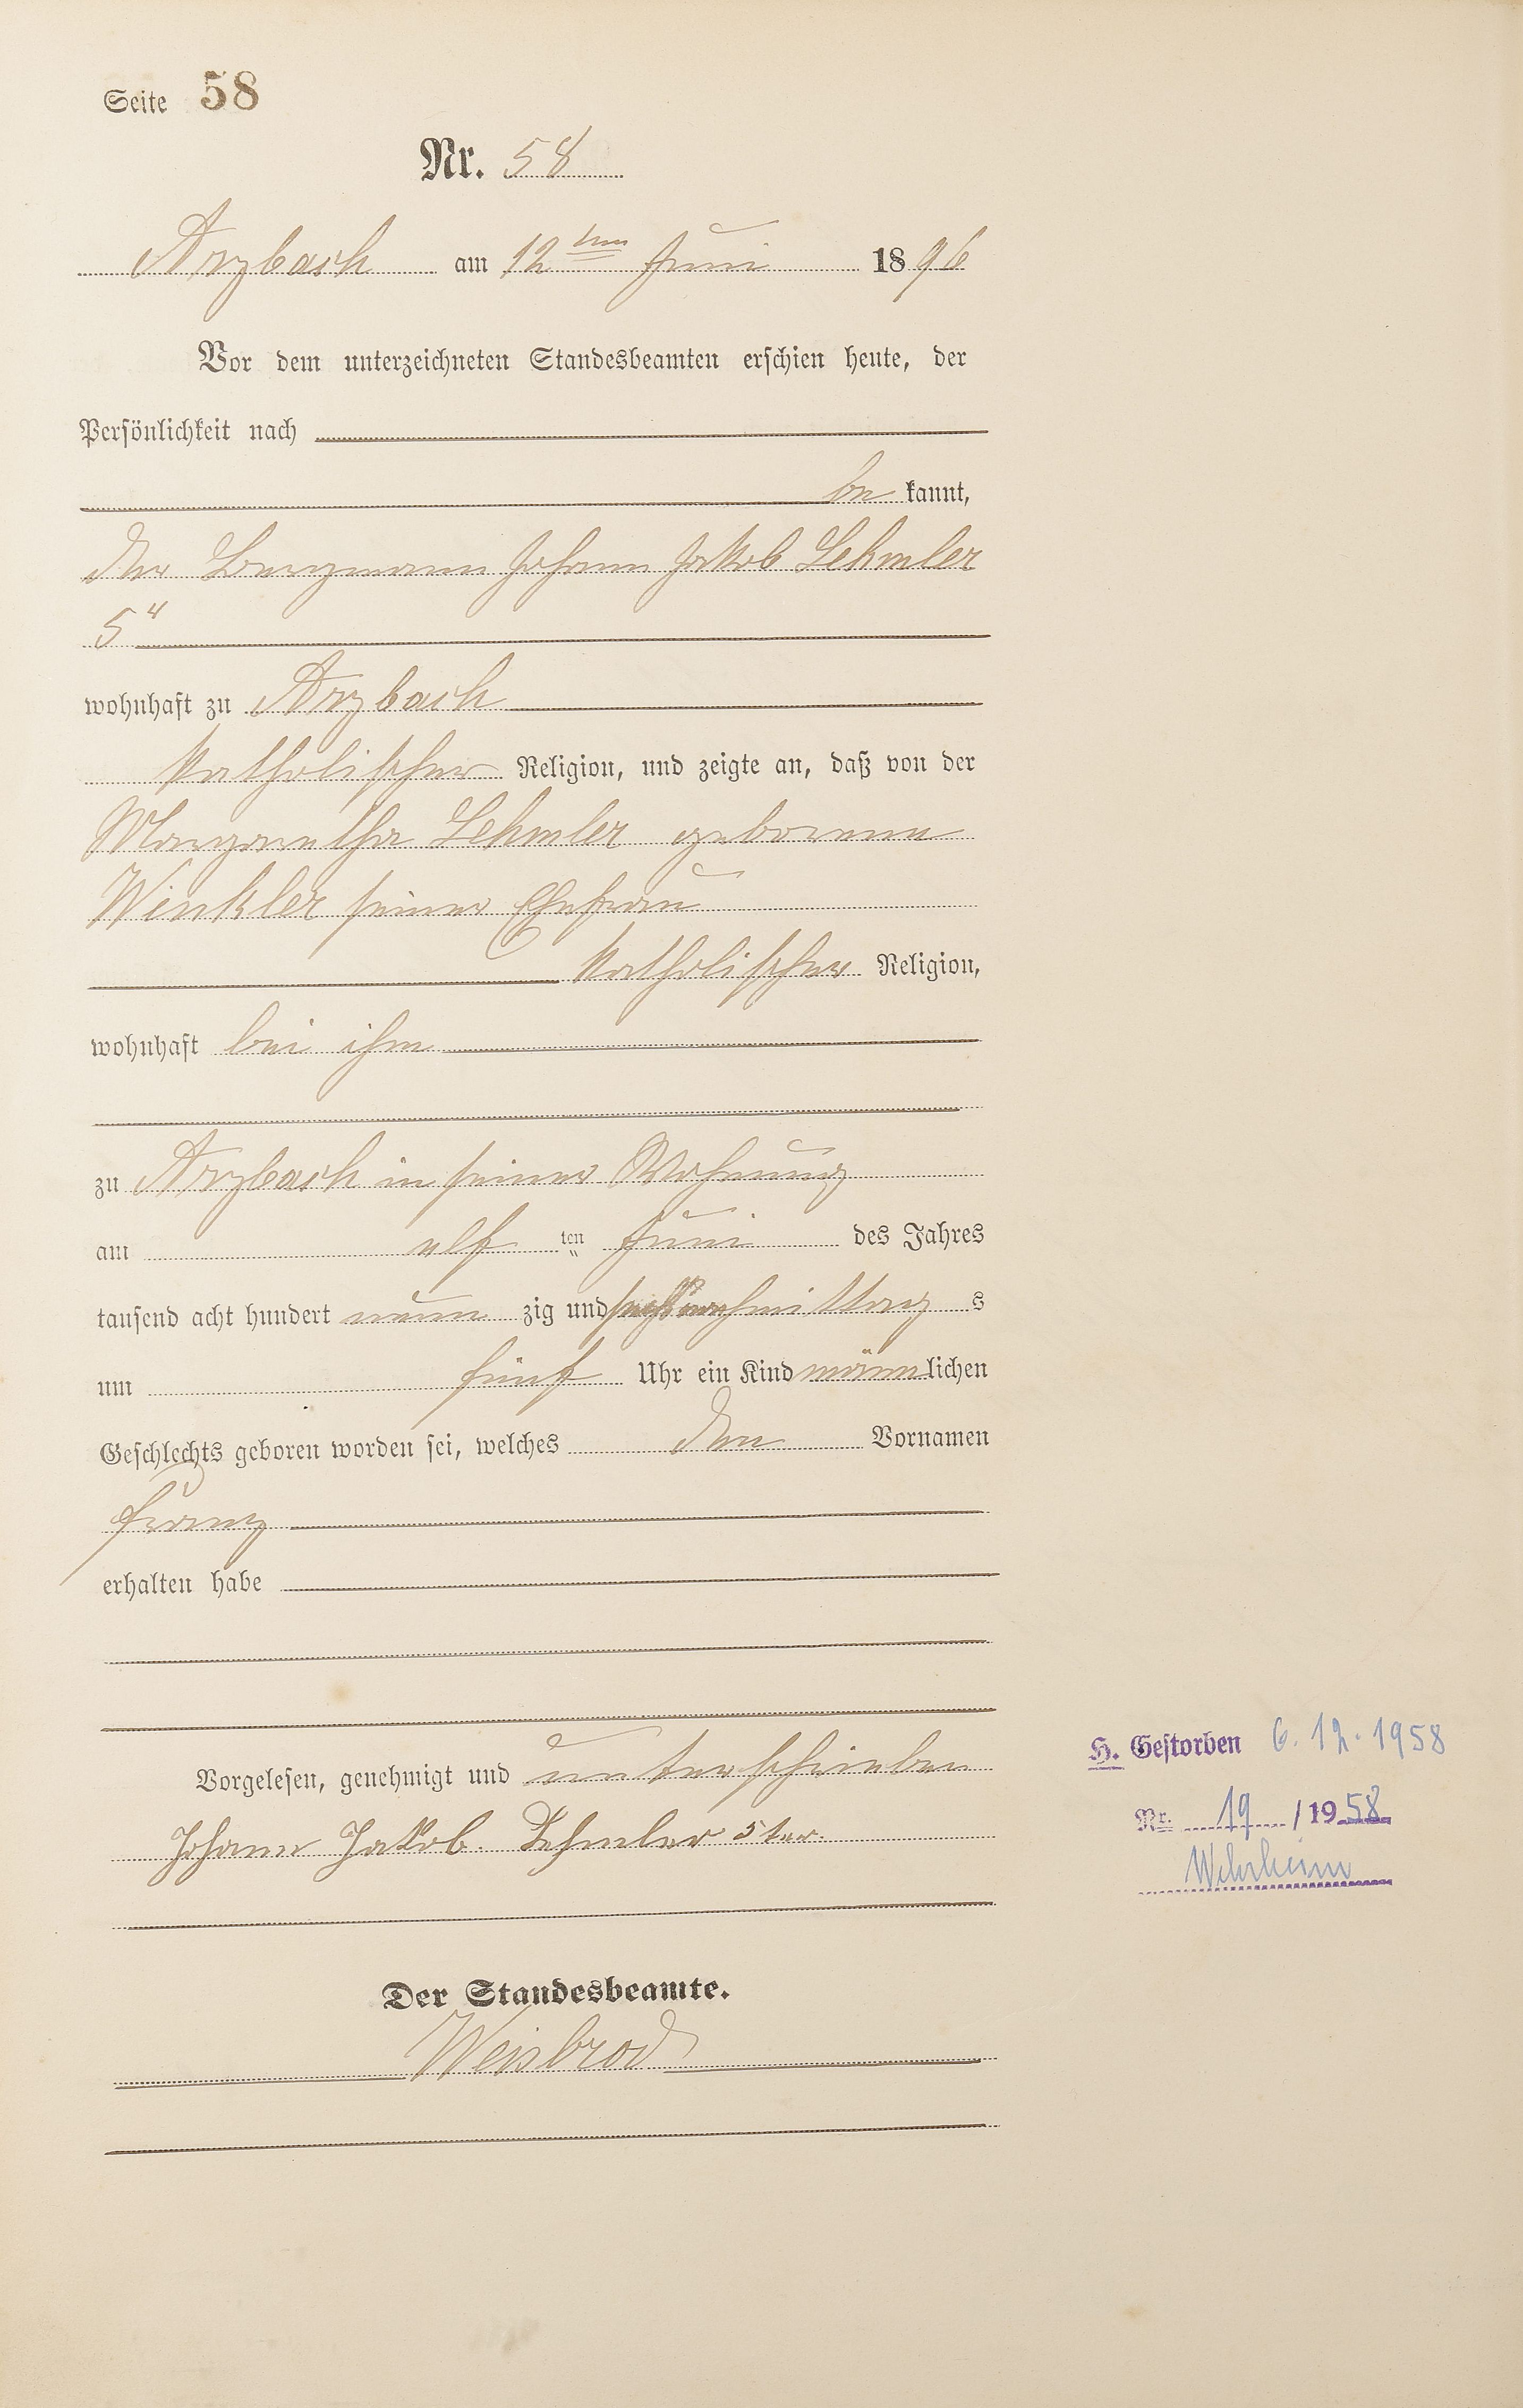 Seite 58
Nr. 58
Arzbach am 12ten Juni 1896
Vor dem unterzeichneten Standesbeamten erschien heute, der
Persönlichkeit nach
be kannt,
der Bergmann Johann Jakob Lehmler
5r
wohnhaft zu Arzbach
katholischer Religion, und zeigte an, daß von der
Margaretha Lehmler geborenen
Winkler seiner Ehefrau
katholischer Religion,
wohnhaft bei ihm
zu Arzbach in seiner Wohnung
am elf ten Juni des Jahres
tausend acht hundert neun zig und sechs nachmittag s
um fünf Uhr ein Kind männlichen
Geschlechts geboren worden sei, welches den Vornamen
Franz
erhalten habe
Vorgelesen, genehmigt und unterschrieben
Johann Jakob Lehmler 5ter.
Der Standesbeamte.
Weisbrod
H. Gestorben 6.12.1958
Nr. 19 / 1958
Wehrheim